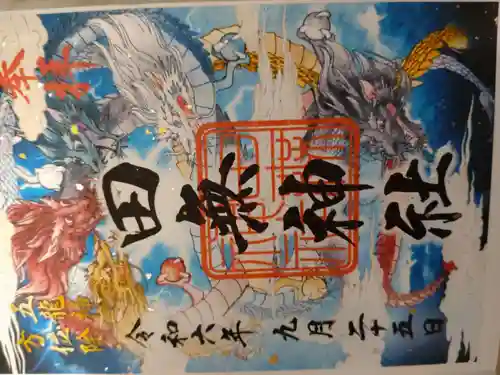 奉拝
田無神社
五龍神
方位除
令和六年 九月二十五日